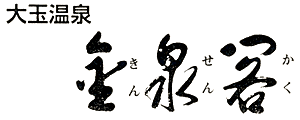 大玉温泉
金泉閣
きんせんかく